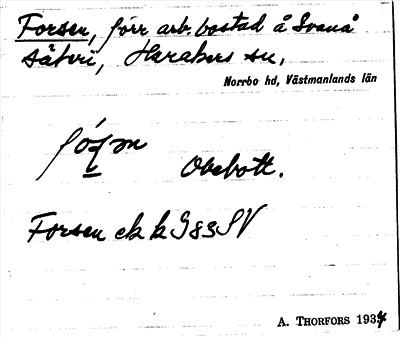 Forsen, förr arb. bostad å Svanå
säteri, Haraker sn,
Norrbo hd, Västmanlands län
Obebott.
Forsen ek k G83 SV
A. THORFORS 1934